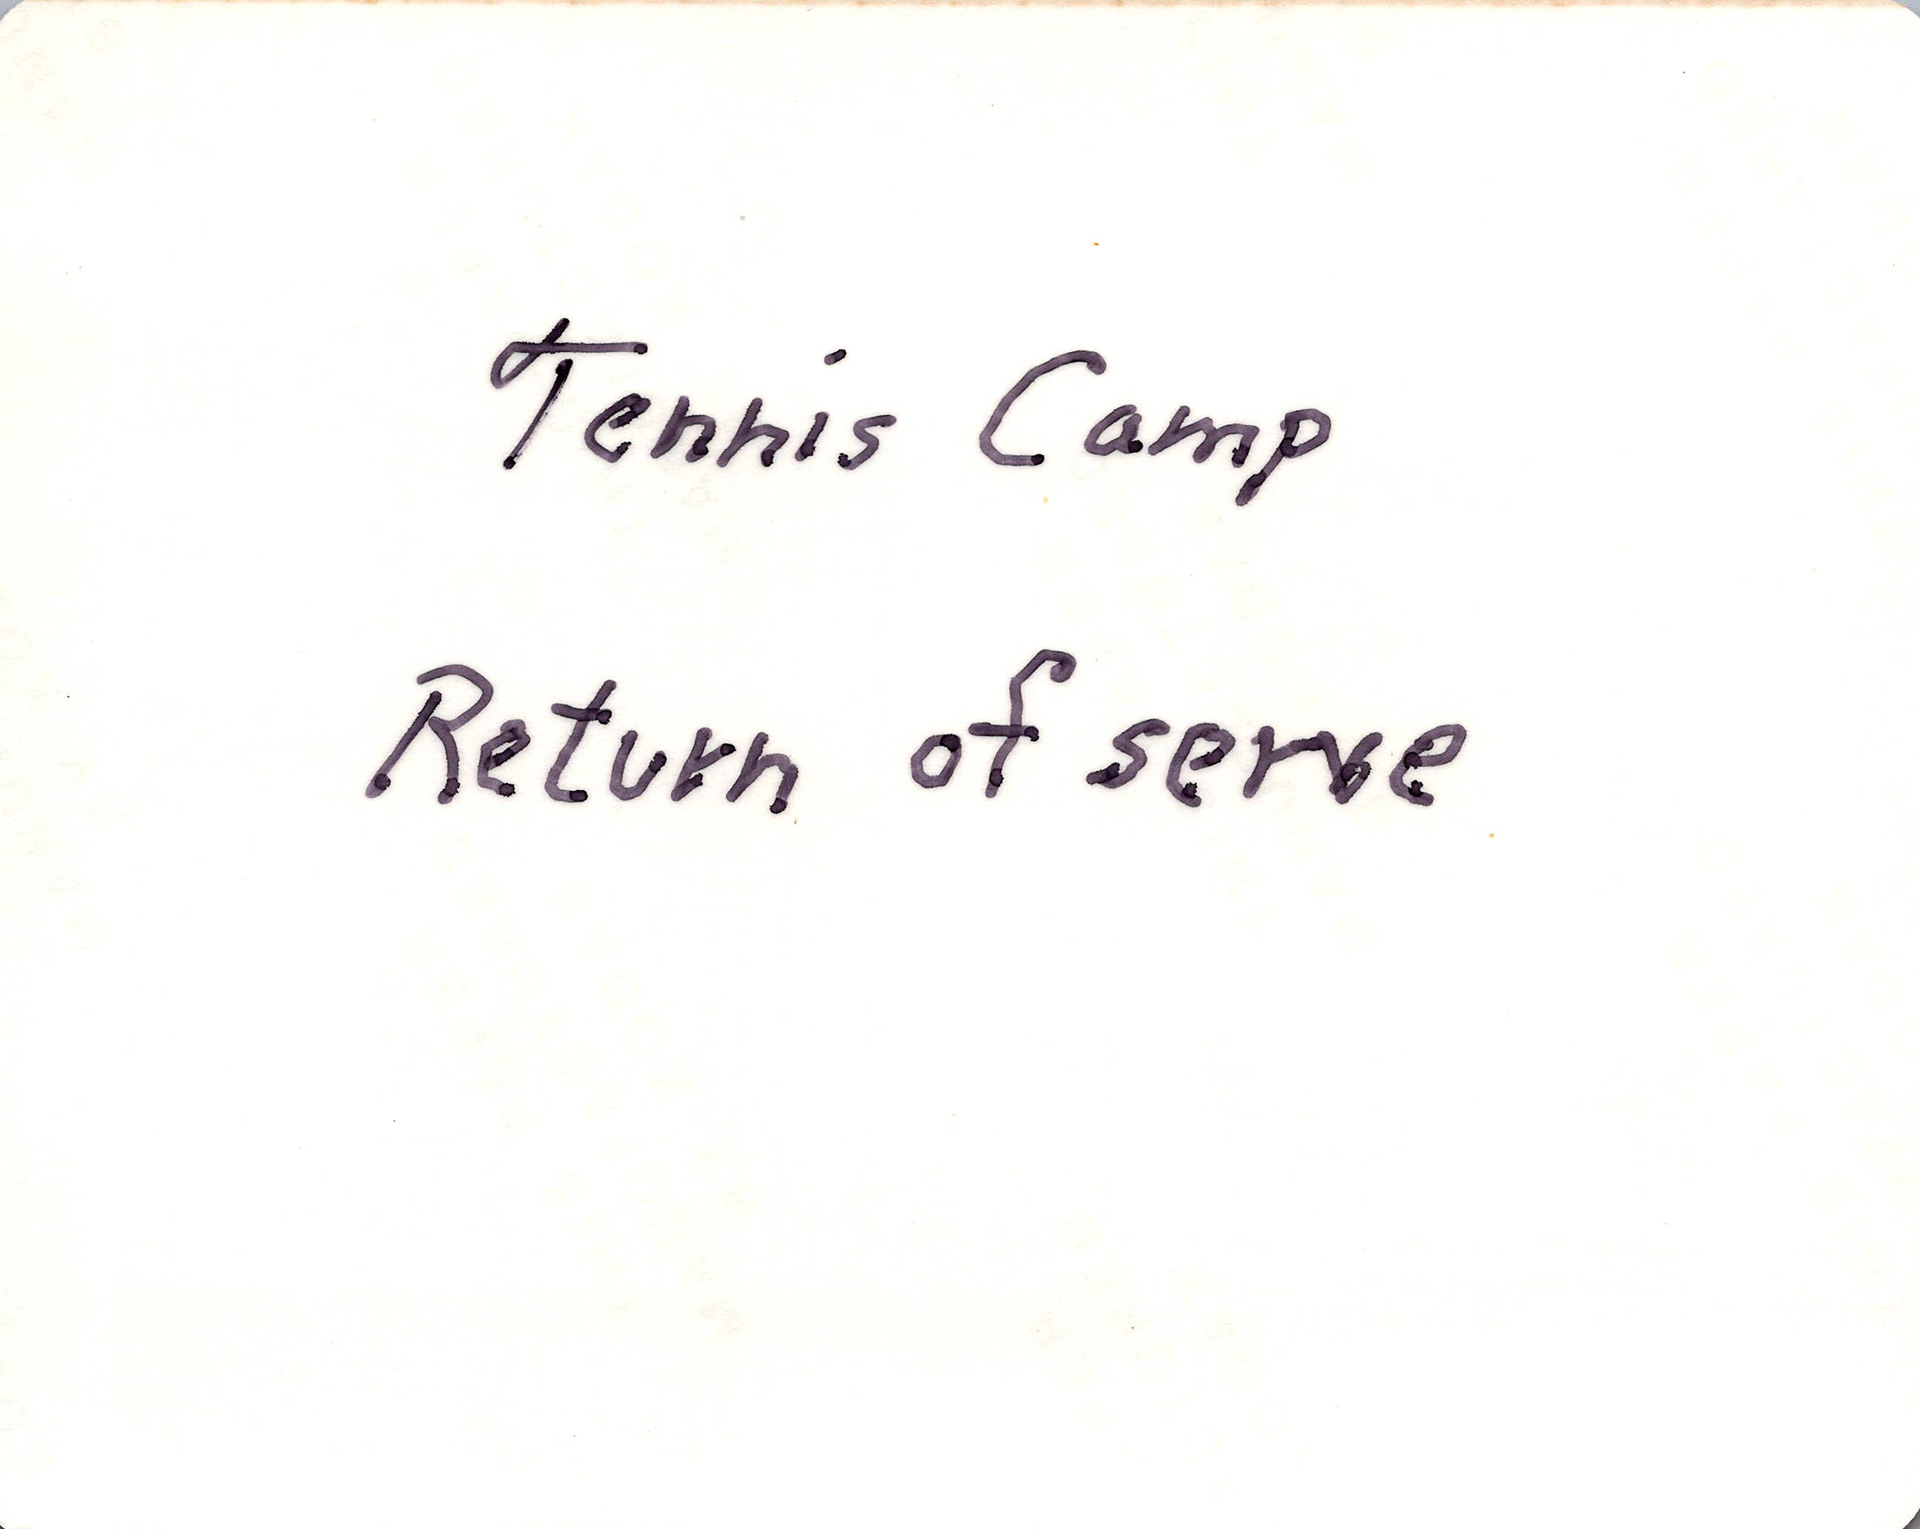 Tennis Camp
Return of serve